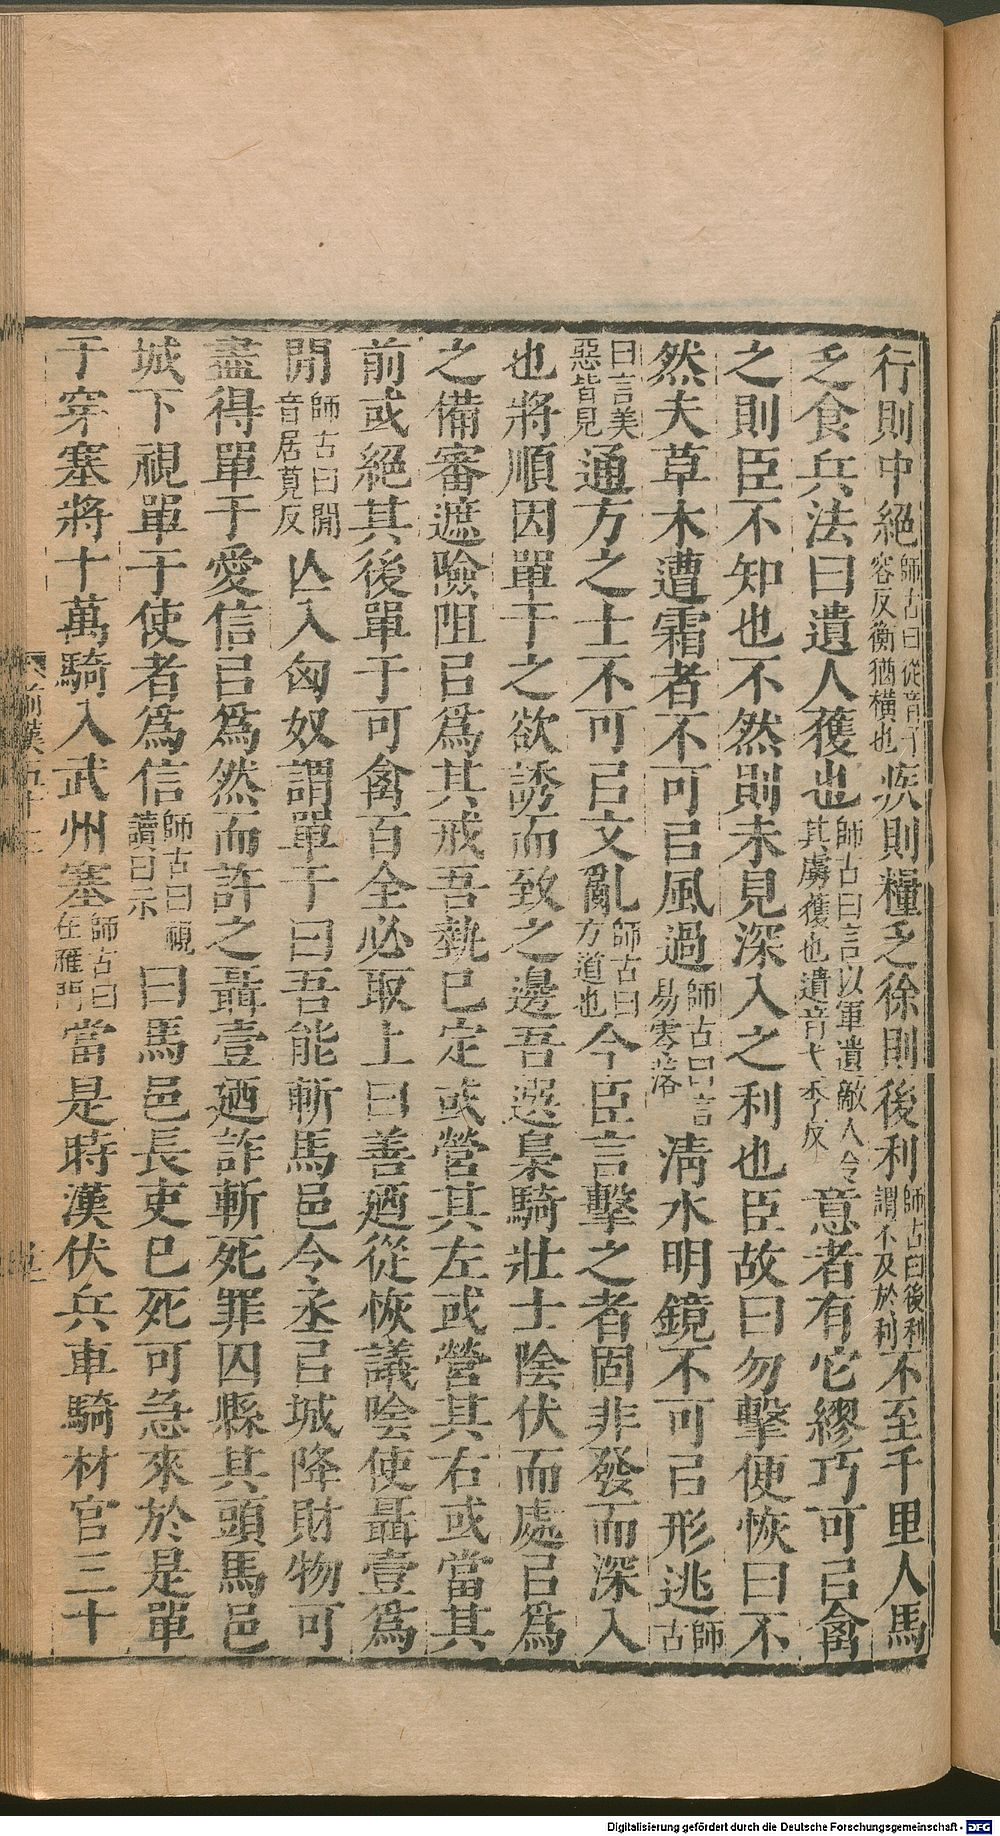 行則中絕師古曰從音子容反衡猶橫也疾則糧乏徐則後利師古曰後利謂不及於利不至千里人馬
乏食兵法曰遺人獲也師古曰言以軍遺敵人令其虜獲也遺音弋季反意者有它繆巧可㠯禽
之則臣不知也不然則未見深入之利也臣故曰勿擊便恢曰不
然夫草木遭霜者不可㠯風過師古曰言易零落淸水明鏡不可㠯形逃師古
曰言美惡皆見通方之士不可㠯文亂師古曰方道也今臣言擊之者固非發而深入
也將順因單于之欲誘而致之邊吾選梟騎壯士陰伏而處㠯爲
之備審遮險阻㠯爲其戒吾埶已定或營其左或營其右或當其
前或絕其後單于可禽百全必取上曰善廼從恢議陰使聶壹爲
閒師古曰閒音居莧反亾入匈奴謂單于曰吾能斬馬邑令丞㠯城降財物可
盡得單于愛信㠯爲然而許之聶壹廼詐斬死罪囚縣其頭馬邑
城下視單于使者爲信師古曰視讀曰示曰馬邑長吏已死可急來於是單
于穿塞將十萬騎入武州塞師古曰在雁門當是時漢伏兵車騎材官三十
前漢五十二
Digitalisierung gefördert durch die Deutsche Forschungsgemeinschaft - DFG